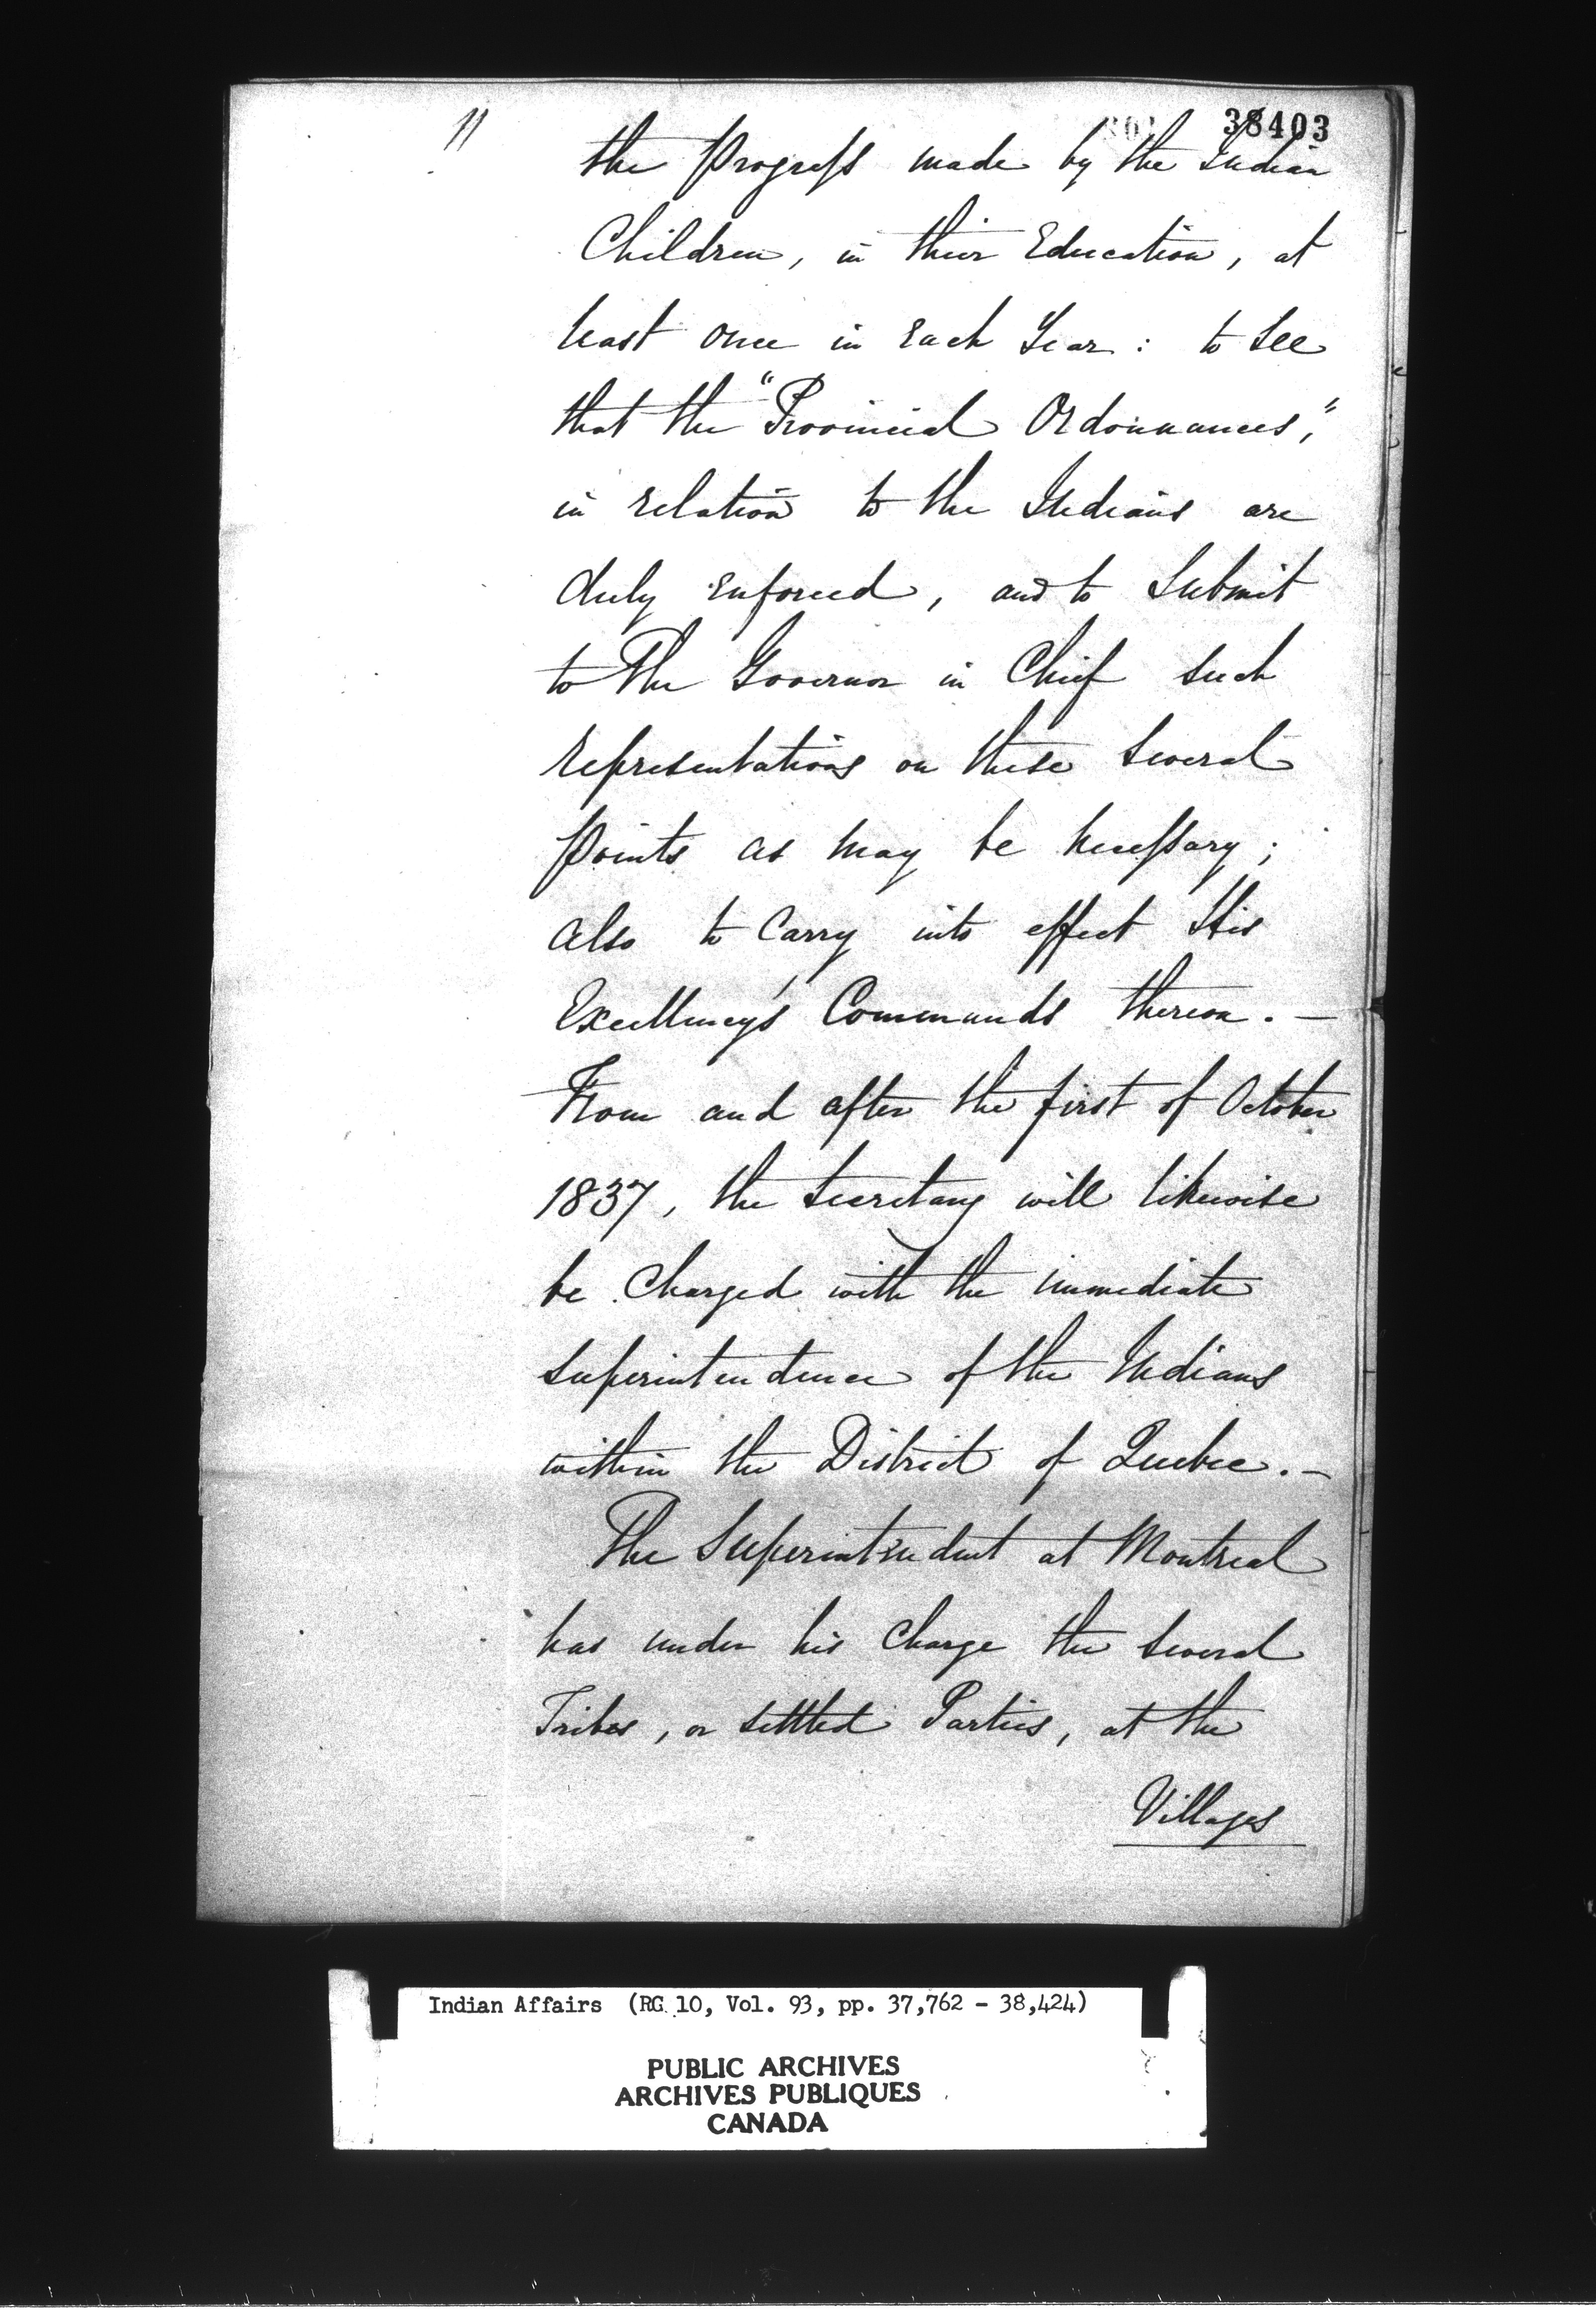 11
38403
the Progress made by the Indian
Children, in their Education, at
least once in each Year: to see
that the "Provincial Ordonnances,"
in relation to the Indians are
duly enforced, and to submit
to The Governor in Chief such
representations on these several
points as may be necessary;
also to carry into effect His
Excellency's Commands thereon. —
From and after the first of October
1837, the Secretary will likewise
be charged with the immediate
superintendence of the Indians
within the District of Quebec. —
The Superintendent at Montreal
has under his charge the several
Tribes, or settled Parties, at the
Villages
Indian Affairs (RG 10, Vol. 93, pp. 37,762 - 38,424)
PUBLIC ARCHIVES
ARCHIVES PUBLIQUES
CANADA